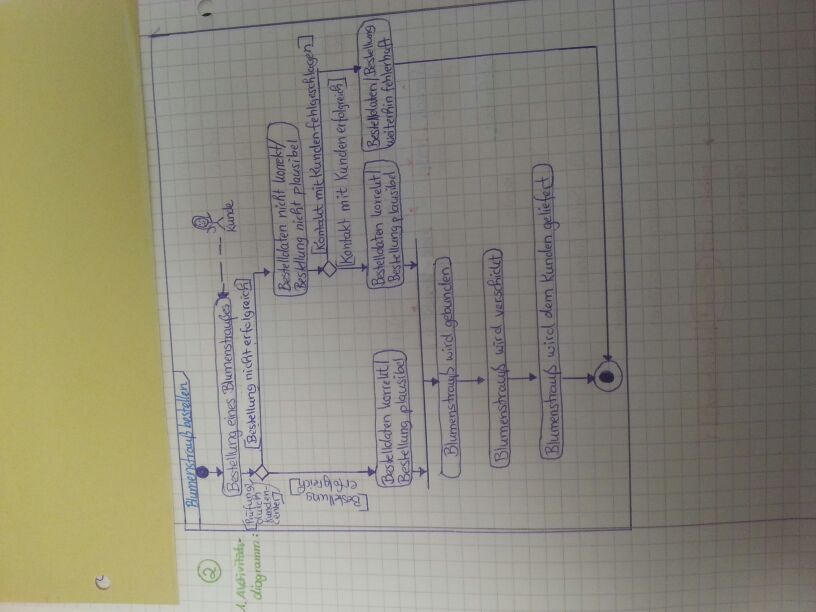 ②
1. Aktivitäts-
diagramm:
Blumenstrauß bestellen
Bestellung eines Blumenstraußes
Kunde
[Prüfung
durch
Kunden-
center]
[Bestellung nicht erfolgreich]
[Bestellung
erfolgreich]
Bestelldaten nicht korrekt/
Bestellung nicht plausibel
[Kontakt mit Kunden fehlgeschlagen]
[Kontakt mit Kunden erfolgreich]
Bestelldaten/Bestellung
weiterhin fehlerhaft
Bestelldaten korrekt/
Bestellung plausibel
Bestelldaten korrekt/
Bestellung plausibel
Blumenstrauß wird gebunden
Blumenstrauß wird verschickt
Blumenstrauß wird dem Kunden geliefert